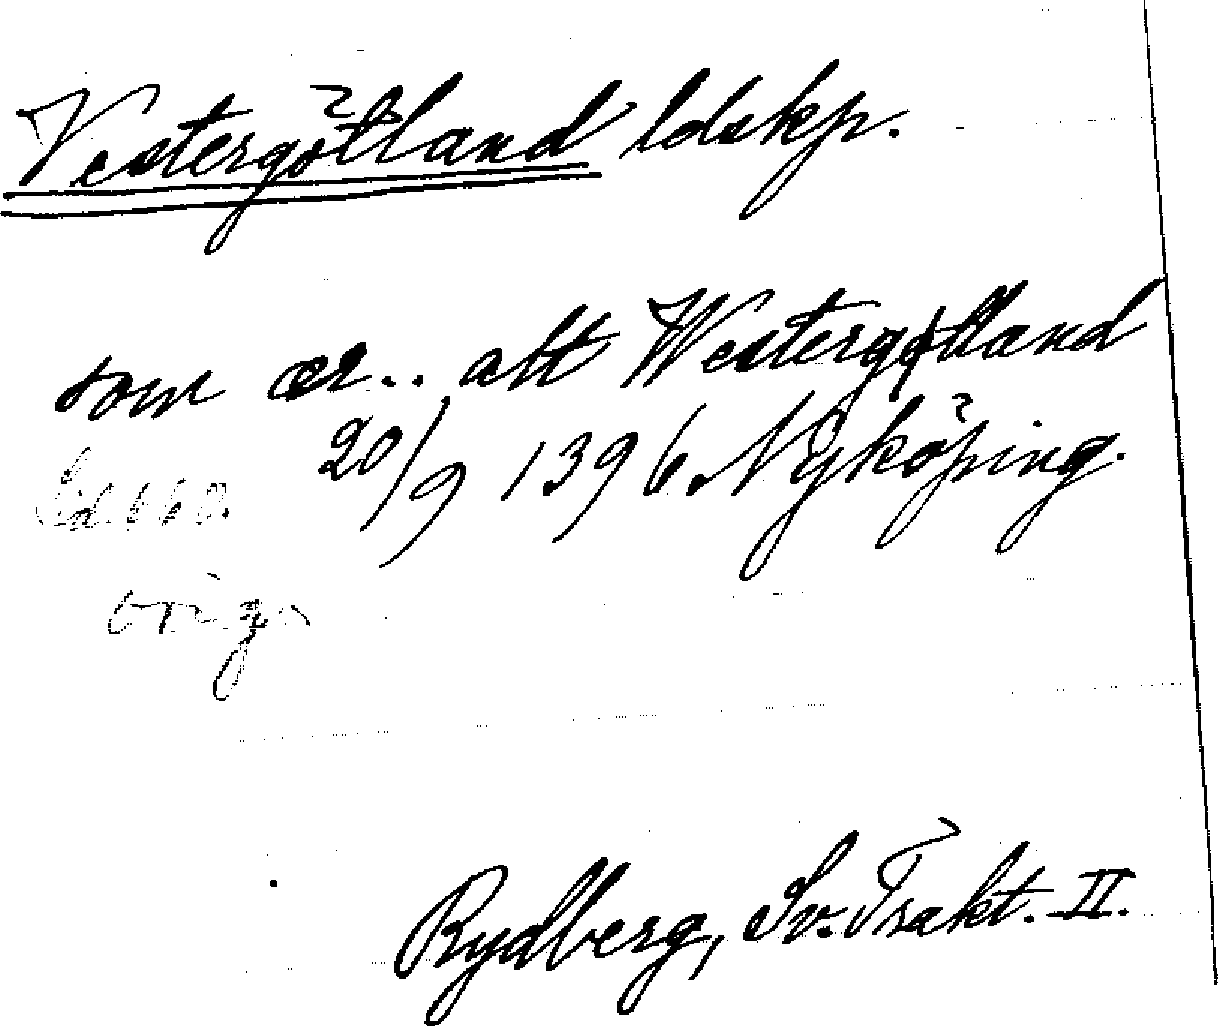 Vestergötland ldskp.
som ær.. alt Westergøtland
20/9 1396. Nyköping.
orig.
Rydberg, Sv. Trakt. II.